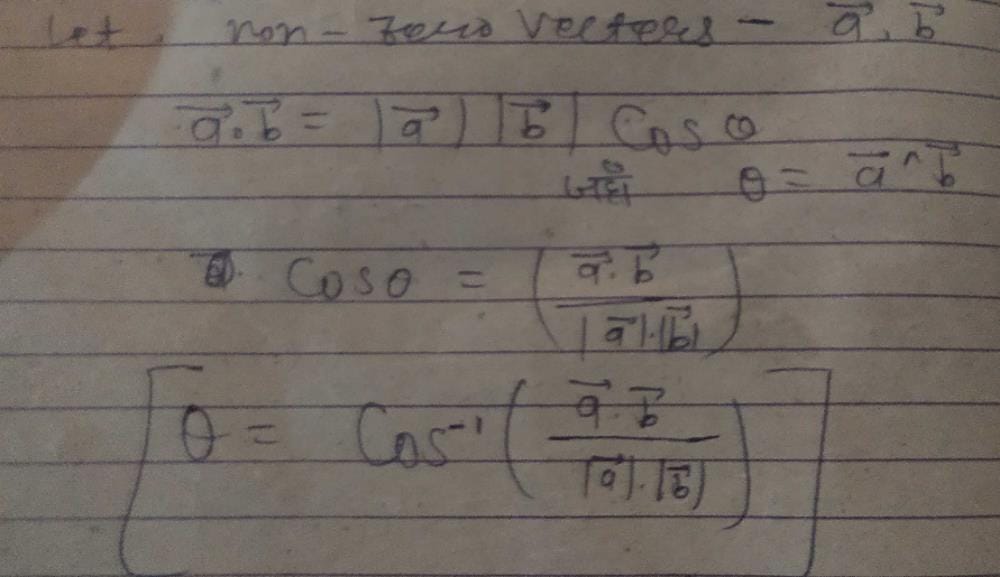 Let, non-zero vectors - a⃗, b⃗
a⃗.b⃗ = |a⃗| |b⃗| Cos θ
जहाँ θ = a⃗ ^ b⃗
Cosθ = (a⃗.b⃗ / |a⃗|.|b⃗|)
θ = Cos⁻¹ (a⃗.b⃗ / |a⃗|.|b⃗|)